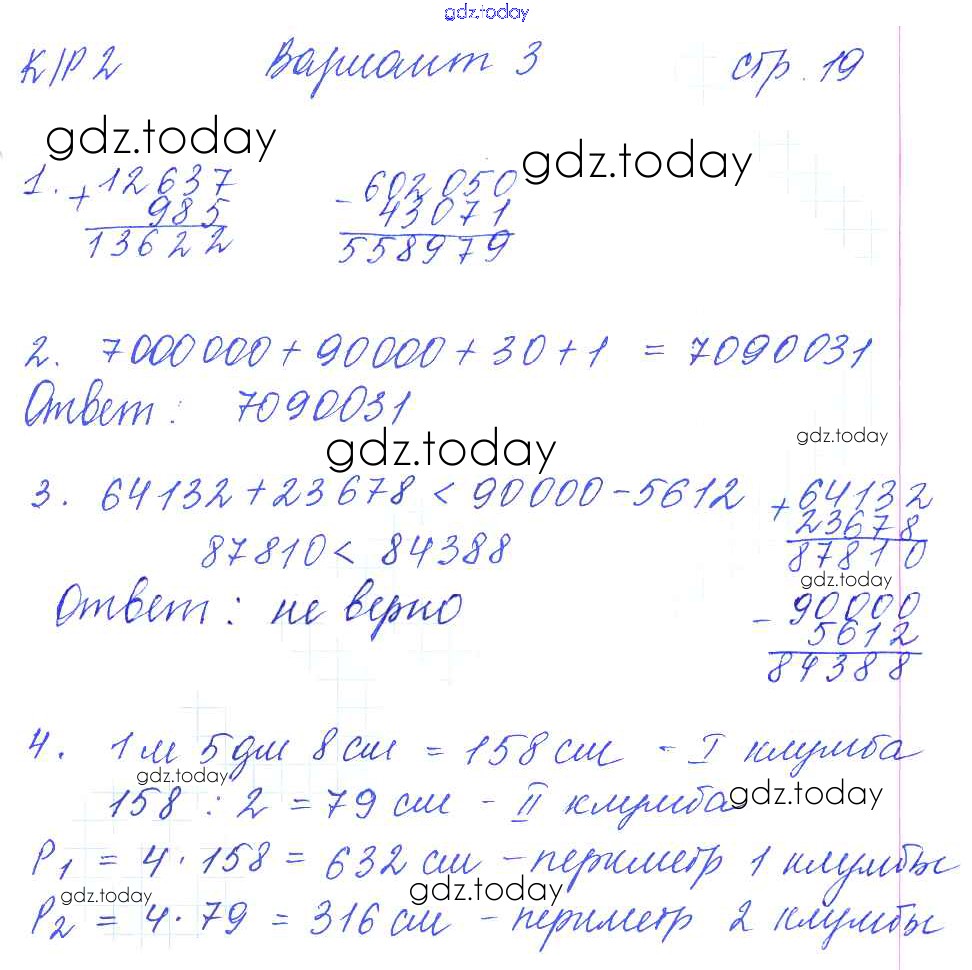 gdz.today
К/Р 2 Вариант 3 стр. 19
gdz.today
gdz.today
1. + 12637 - 602050
985 43071
13622 558979
2. 7000000 + 90000 + 30 + 1 = 7090031
Ответ: 7090031
gdz.today
gdz.today
3. 64132 + 23678 < 90000 - 5612 + 64132
23678
87810 < 84388 87810
gdz.today
Ответ: не верно - 90000
5612
84388
4. 1 м 5 дм 8 см = 158 см - I клумба
gdz.today
158 : 2 = 79 см - II клумба
gdz.today
P1 = 4 · 158 = 632 см - периметр 1 клумбы
gdz.today
gdz.today
P2 = 4 · 79 = 316 см - периметр 2 клумбы